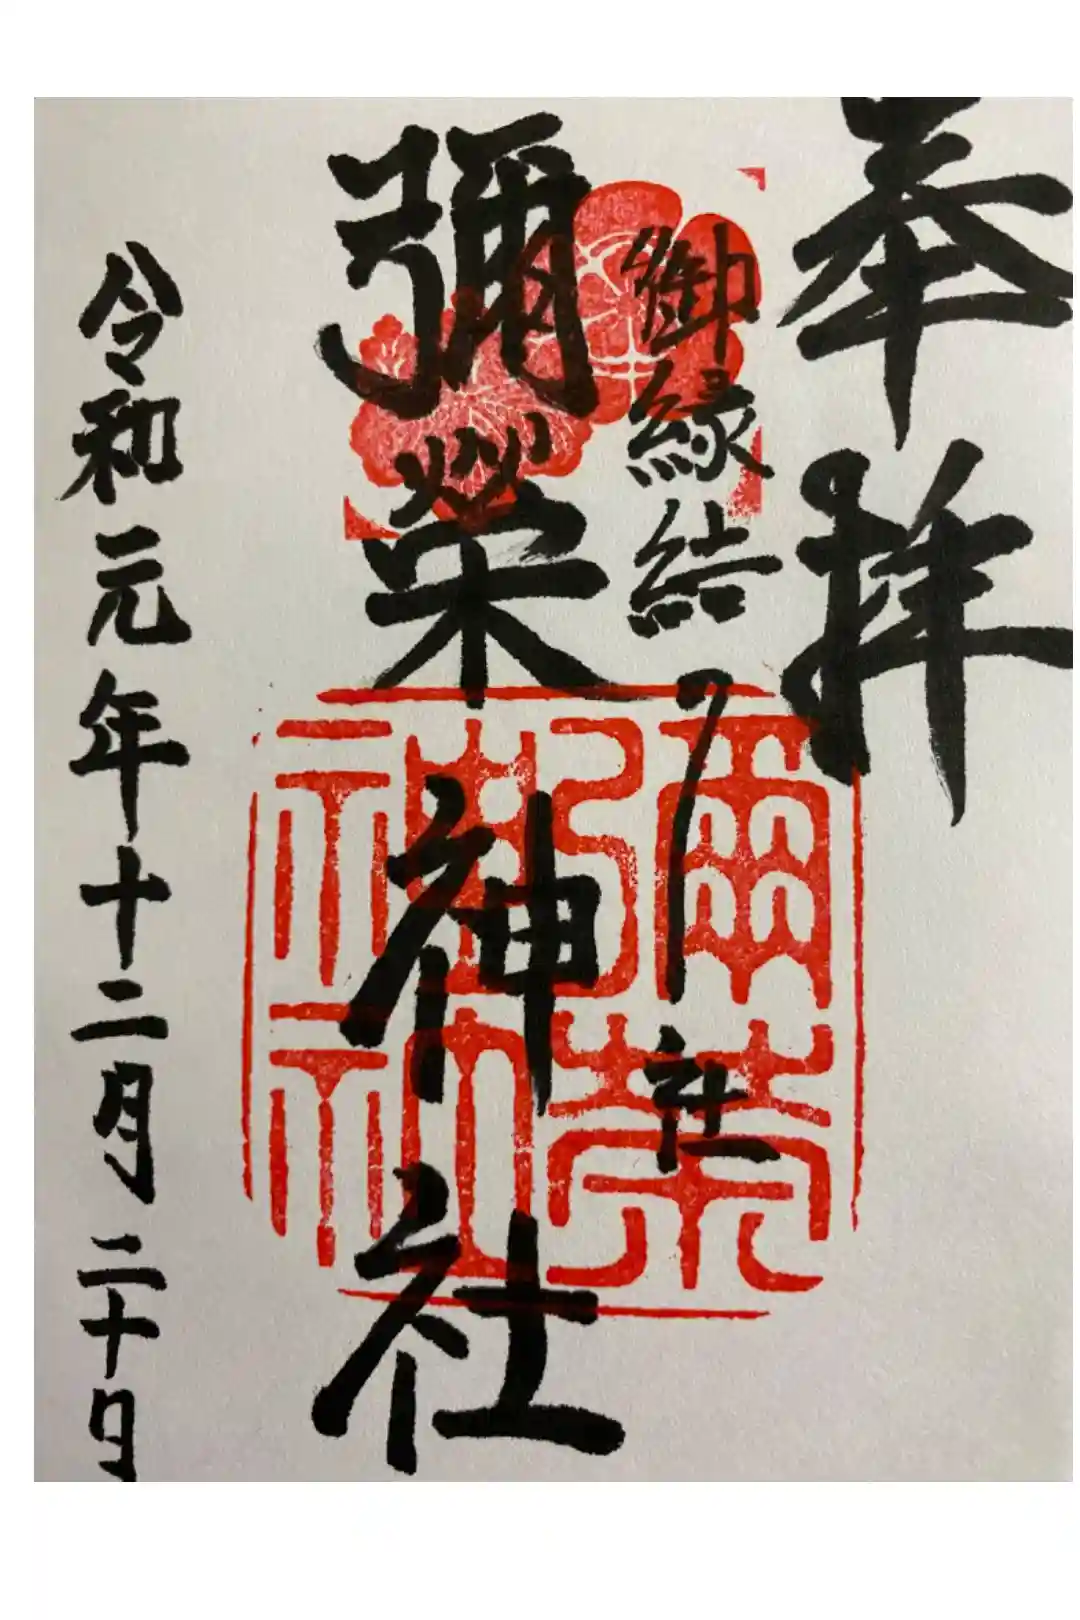 奉拝
御縁結びノ社
彌榮神社
彌榮
神社
令和元年十二月二十日